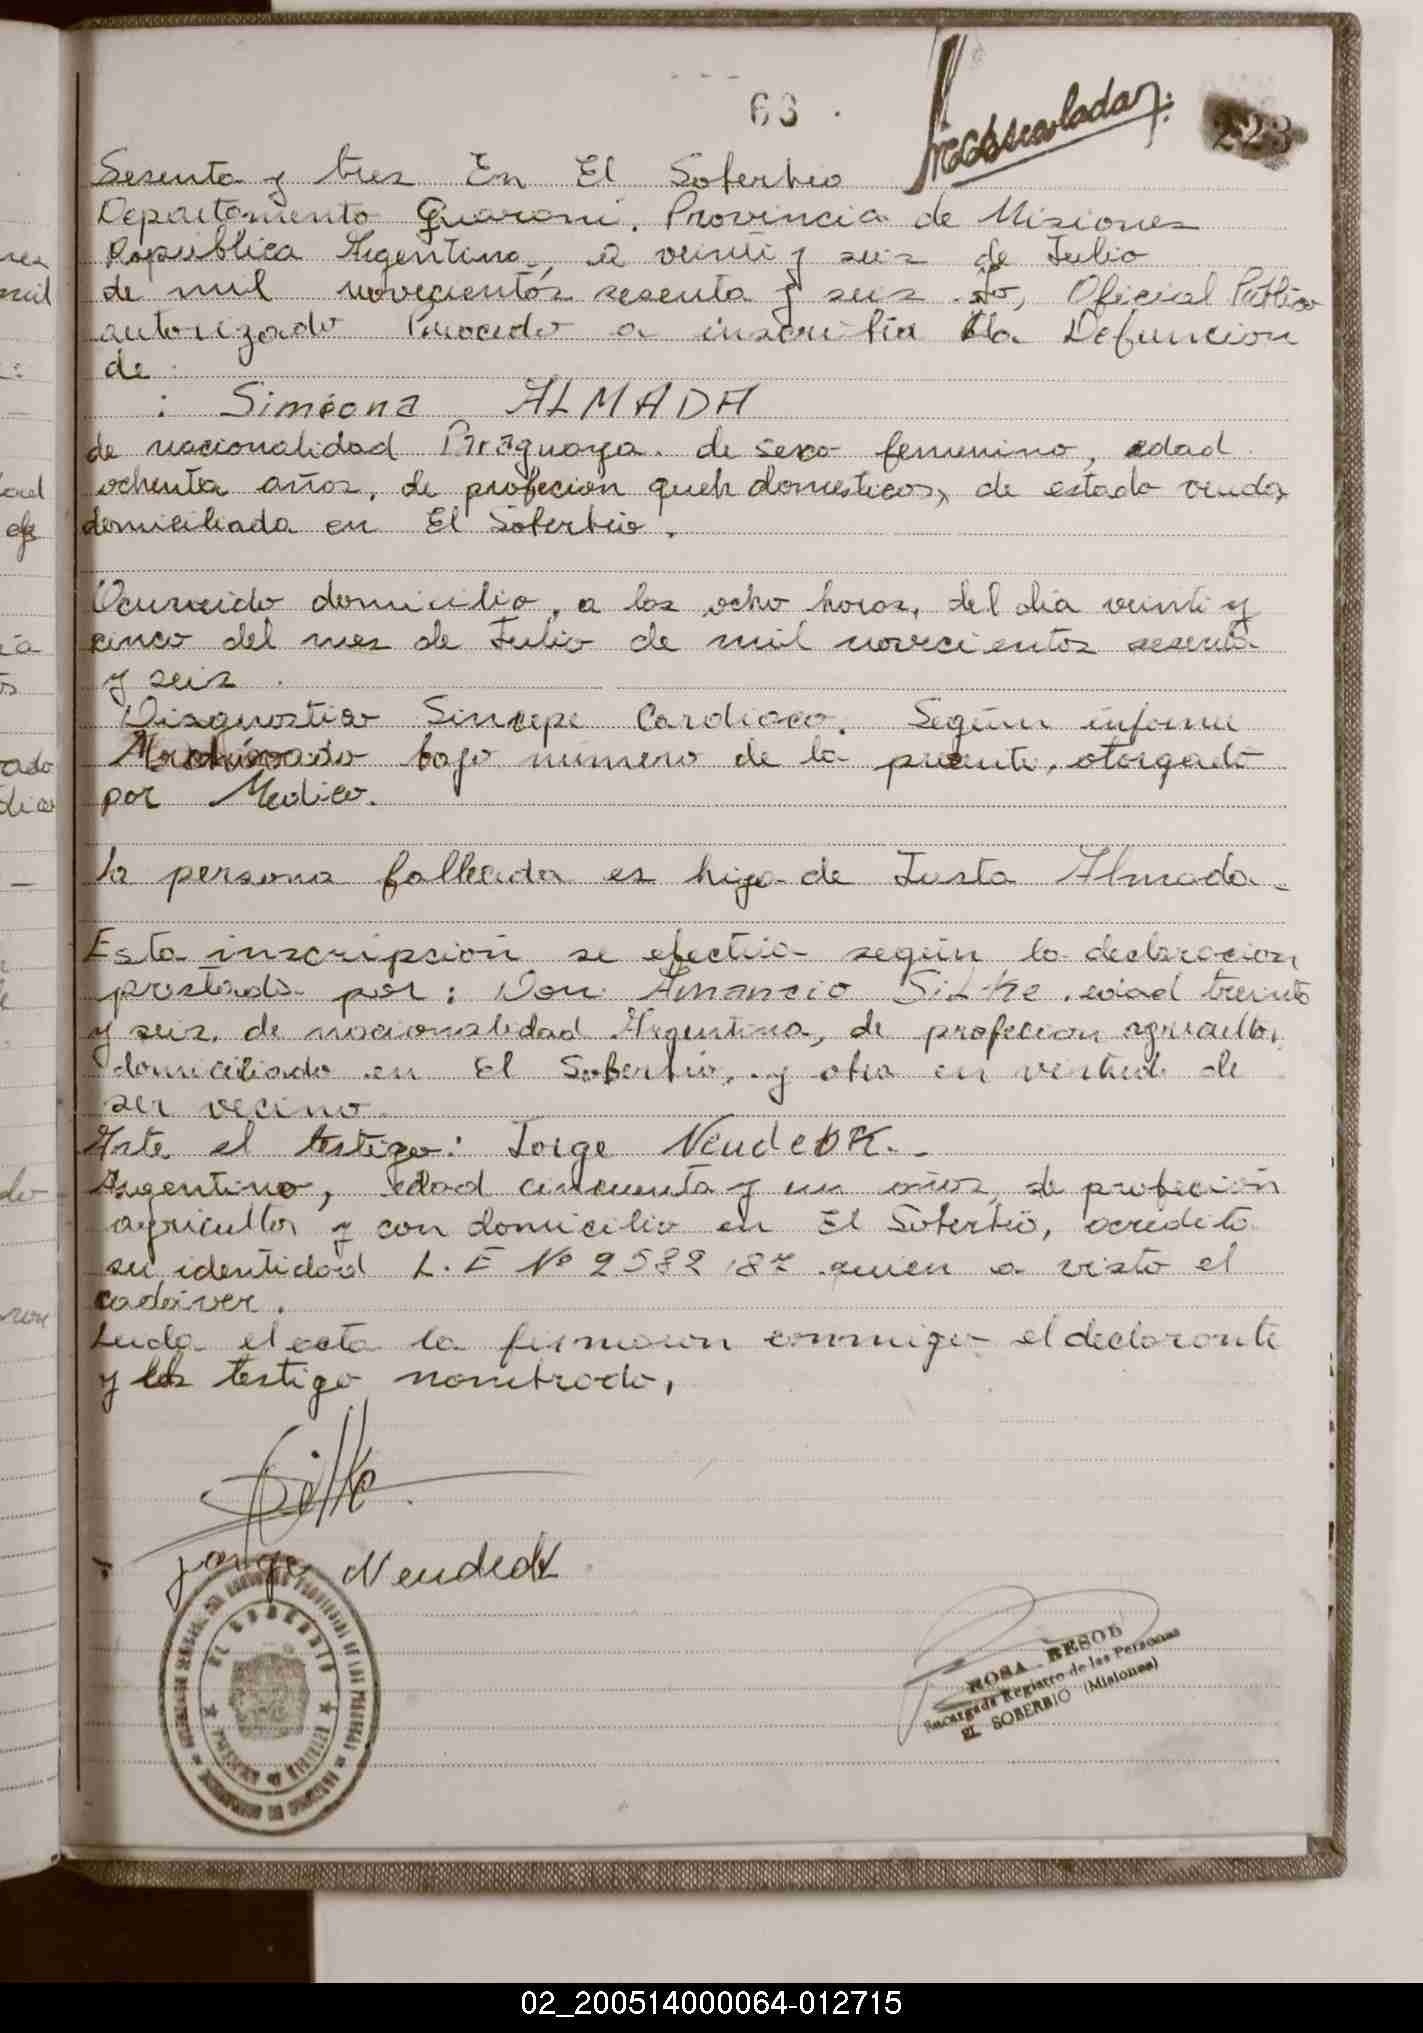 63
223
Sesenta y tres En El Soberbio
Departamento Guarani. Provincia de Misiones
Republica Argentina, a veinti y seis de Julio
de mil novecientos sesenta y seis .Yo, Oficial Publico
autorizado Procedo a inscribir la Defuncion
de
: Simeona ALMADA
de nacionalidad Paraguaya. de sexo femenino, edad
ochenta años, de profecion queh domesticos, de estado viuda
domiciliada en El Soberbio.
Ocurrido domicilio, a las ocho horas, del dia veinti y
cinco del mes de Julio de mil novecientos sesenta
y seis .
Diagnostico Sincope Cardiaco. Según informe
Archivado bajo número de la presente, otorgado
por Medico.
La persona fallecida es hija de Justa Almada.
Esta inscripción se efectúa según la declaracion
prestada por: Don Amancio Silke. edad treinta
y seis, de nacionalidad Argentina, de profecion agricultor,
domiciliado en El Soberbio, y obra en virtud de
ser vecino.
Ante el testigo: Jorge
Argentino, edad cincuenta y un años, de profeción
agricultor y con domicilio en El Soberbio, acredita
su identidad L.E Nº quien a visto el
cadáver.
Leida el acta la firmaron conmigo el declarante
y el testigo nombrado,
Jorge
EL SOBERBIO
ROSA BESOL
Encargada Registro de las Personas
EL SOBERBIO (Misiones)
02_200514000064-012715